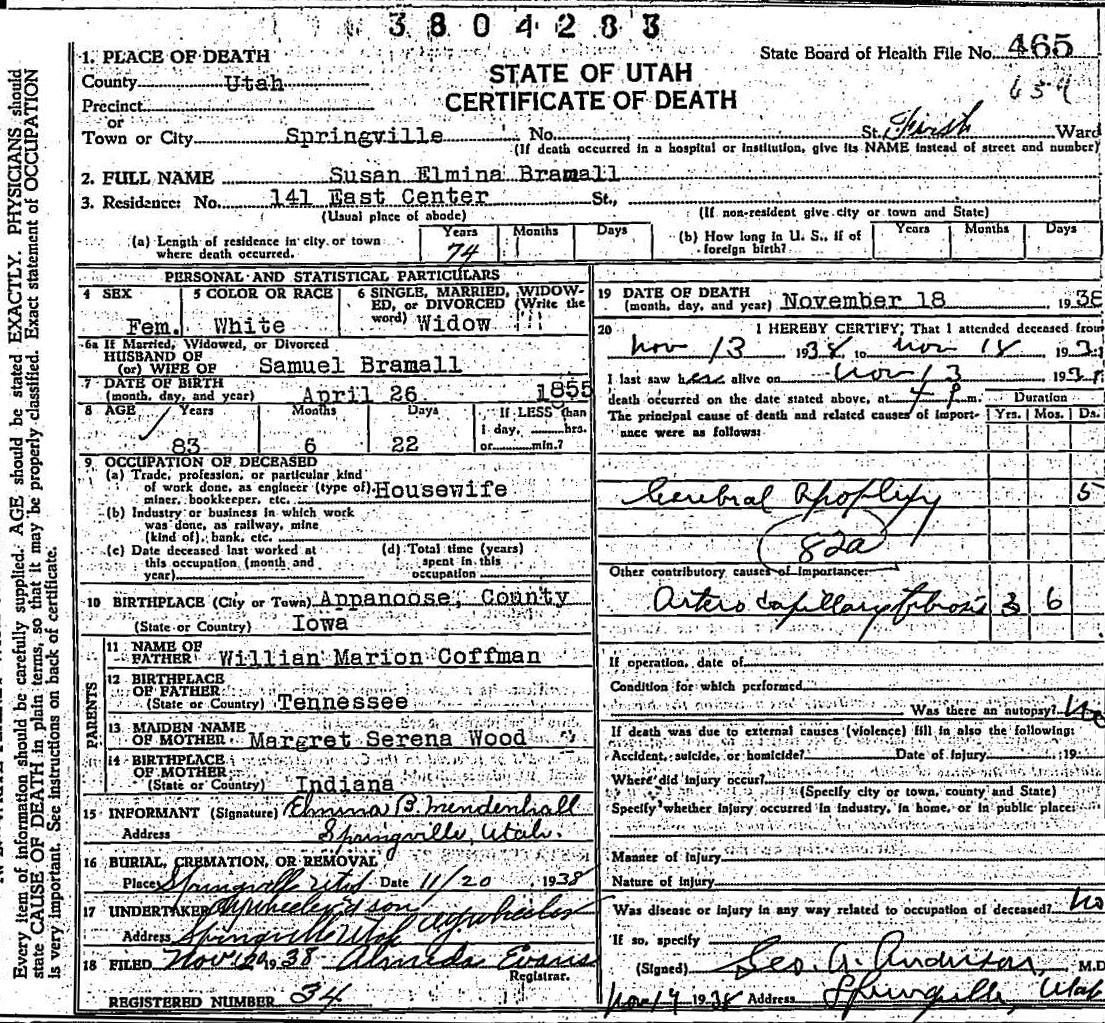 3804283
State Board of Health File No. 465
659
1. PLACE OF DEATH
STATE OF UTAH
CERTIFICATE OF DEATH
County Utah
Precinct
or
Town or City Springville No. St. First Ward
(If death occurred in a hospital or institution, give its NAME instead of street and number)
2. FULL NAME Susan Elmina Bramall
3. Residence: No. 141 East Center St.,
(Usual place of abode) (If non-resident give city or town and State)
(a) Length of residence in city or town where death occurred. Years 74 Months Days
(b) How long in U. S., if of foreign birth? Years Months Days
PERSONAL AND STATISTICAL PARTICULARS
4 SEX Fem.
5 COLOR OR RACE White
6 SINGLE, MARRIED, WIDOWED, OR DIVORCED (Write the word) Widow
6a If Married, Widowed, or Divorced
HUSBAND OF
(or) WIFE OF Samuel Bramall
7 DATE OF BIRTH
(month, day, and year) April 26 1855
8 AGE Years Months Days If LESS than
1 day, hrs.
83 6 22 or min.?
9 OCCUPATION OF DECEASED
(a) Trade, profession, or particular kind
of work done, as engineer (type of)
miner, bookkeeper, etc. Housewife
(b) Industry or business in which work
was done, as railway, mine
(kind of), bank, etc.
(c) Date deceased last worked at
this occupation (month and
year)
(d) Total time (years)
spent in this
occupation
10 BIRTHPLACE (City or Town) Appanoose, County
(State or Country) Iowa
PARENTS
11 NAME OF
FATHER Willian Marion Coffman
12 BIRTHPLACE
OF FATHER
(State or Country) Tennessee
13 MAIDEN NAME
OF MOTHER Margret Serena Wood
14 BIRTHPLACE
OF MOTHER
(State or Country) Indiana
15 INFORMANT (Signature) Elmina B. Mendenhall
Address Springville, Utah.
16 BURIAL, CREMATION, OR REMOVAL
Place Springville Utah Date 11/20 1938
17 UNDERTAKER A Y Wheeler & son
Address Springville Utah A Y Wheeler
18 FILED Nov 1938 Almeda Evans
Registrar.
REGISTERED NUMBER 34
19 DATE OF DEATH
(month, day, and year) November 18 1938
20 I HEREBY CERTIFY, That I attended deceased from
Nov 13 1938, to Nov 18 193
I last saw her alive on Nov 13 193
death occurred on the date stated above, at m.
Duration
The principal cause of death and related causes of importance were as follows: Yrs. Mos. Ds.
Cerebral apoplexy 5
82a
Other contributory causes of importance:
Artero capillary fibrosis 3 6
If operation, date of
Condition for which performed
Was there an autopsy? No
If death was due to external causes (violence) fill in also the following:
Accident, suicide, or homicide? Date of injury 19
Where did injury occur?
(Specify city or town, county and State)
Specify whether injury occurred in industry, in home, or in public place:
Manner of injury
Nature of injury
Was disease or injury in any way related to occupation of deceased? No
If so, specify
(Signed) Geo. A. Anderson, M.D.
Nov 19 1938 Address Springville, Utah
Every item of information should be carefully supplied. AGE should be stated EXACTLY. PHYSICIANS should
state CAUSE OF DEATH in plain terms, so that it may be properly classified. Exact statement of OCCUPATION
is very important. See instructions on back of certificate.